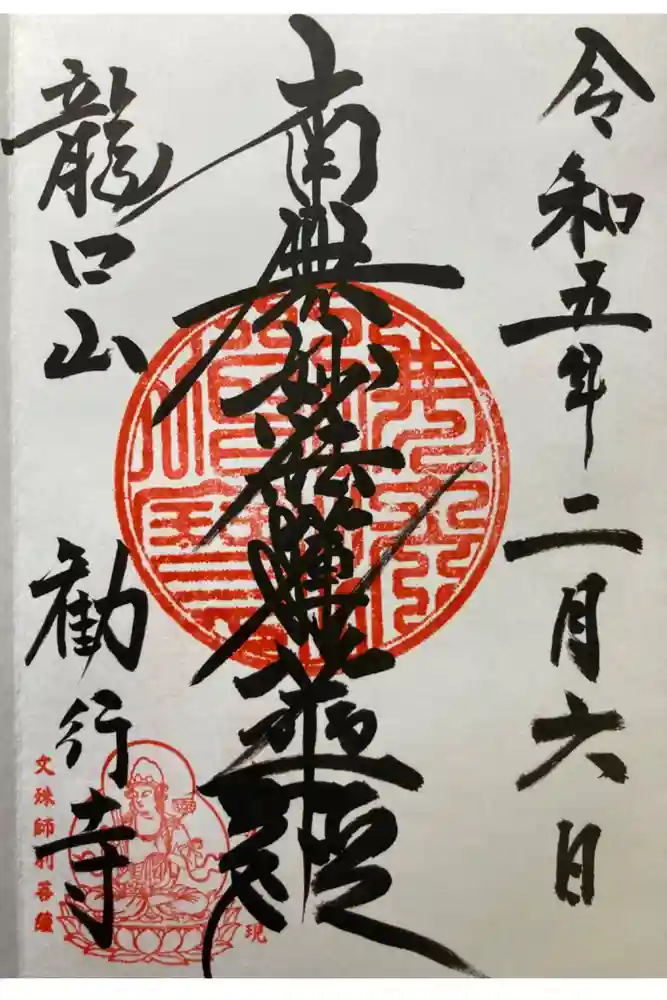 令和五年二月六日
南無妙法蓮華經
龍口山 勧行寺
文殊師利菩薩
現